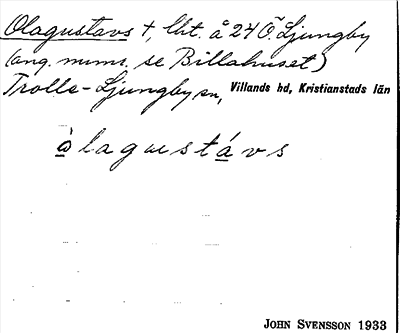 Olagustavs †, lht. å 24 Ö. Ljungby
(ang. numr. se Billahuset)
Trolle-Ljungby sn, Villands hd, Kristianstads län
òlagustávs
JOHN SVENSSON 1933